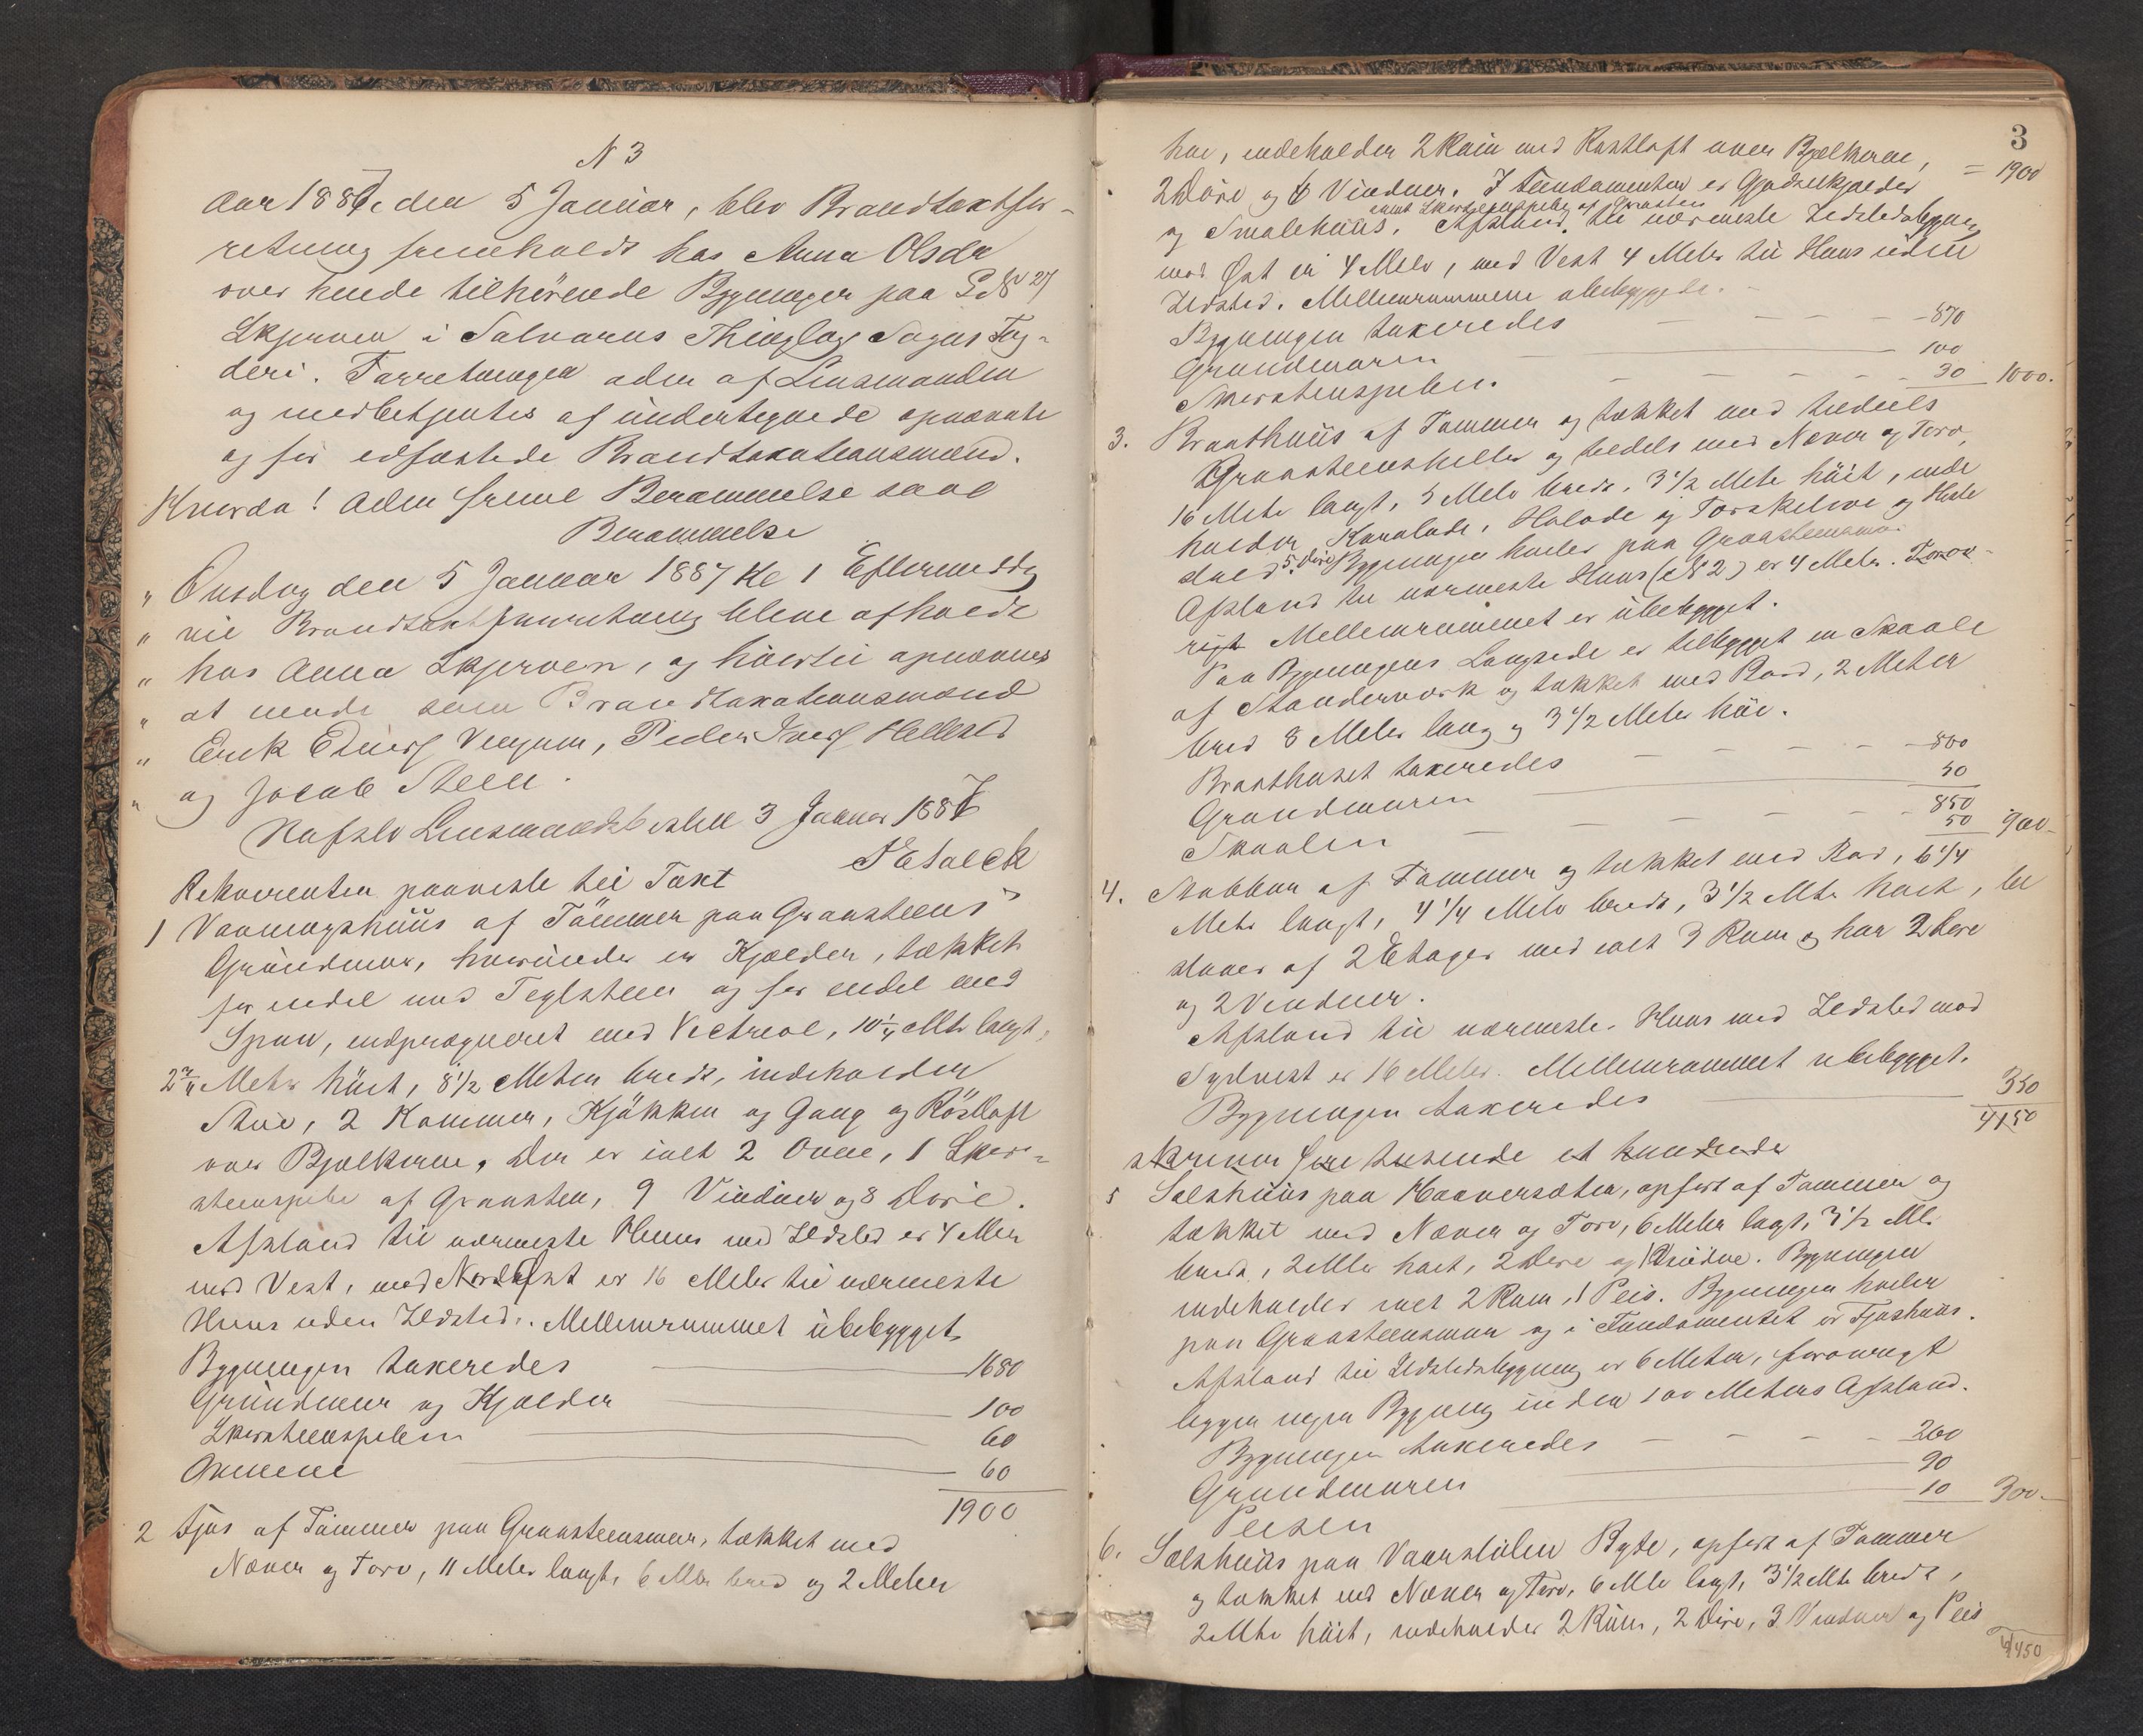 N 3
Aar 1887 den 5 Januar, blev Brandtaxtfor-
retning fremholdt hos Anna Olsdr
over hende tilhörende Bygninger paa G N 27
Skjerven i Solvorns Thinglag Sogns Fog-
deri. Forretningen aden af Lensmanden
og medbetjentes af undertegnede opnævnte
og för edfæstede Brandtaxationsmænd.
! Aden freml Berammelse saal
Berammelse
" Onsdag den 5 Januar 1887 Kl 1 Eftermiddag
" vil Brandtaxtforretning blive afholdt
" hos Anna Skjerven, og hvortil opnævnes
" at möde som Brandtaxationsmænd
" Erik Veugum, Peder Iversf Hellesed
" og Jacob Steen.
Hafslo Lensmandsbestill 3 Januar 1887
Rekvirenten paaviste til Taxt
1 Vaaningshuus af Tömmer paa Graasteens
Grundmur, hvorunder er Kjælder, tækket
for endel med Teglsteen og for endel med
Spaan, indprægneret med Victreol, 10 1/4 Mtr langt,
2 3/4 Meter höit, 8 1/2 Meter bredt, indeholder
Stue, 2 Kammer, Kjökken og Gang og Röstloft
over Bjelkerne. Der er ialt 2 Ovne, 1 Skor-
steenspibe af Graasten, 9 Vinduer og 8 Döre.
Afstand til nærmeste Huus med Ildsted er 4 Meter
mod Vest, mod NordÖst er 16 Meter til nærmeste
Huus uden Ildsted. Mellemrummet ubebygget.
Bygningen taxeredes 1680
Grundmur og Kjælder 100
Skorsteenspiben 60
Ovnene 60
1900
2 Fjös af Tömmer paa Graasteensmur, tækket med
Næver og Torv, 11 Meter langt, 6 Mtr bred og 2 Meter
3
höi, indeholder 2 Rum med Röstloft over Bjelkerne, = 1900
2 Döre og 6 Vinduer. I Fundamentet er Gjødselkjælder
samt Skorsteenspibe af Graasten
og Smalehuus. Afstand til nærmeste Ildstedsbygning
mod Öst er 4 Meter, mod Vest 4 Meter til Huus uden
Ildsted. Mellemrummene ubebyggede.
Bygningen taxeredes 870
Grundmuren 100
Skorstenspiben. 30 1000.
3. Braathuus af Tømmer og tækket med tildeels
Graasteensheller og tildels med Næver og Torv,
16 Meter langt, 5 Meter bredt, 3 1/2 Meter höit, inde
holder Kornlade, Hölade og Torskelove og Heste
stald 5 Döre Bygningen hviler paa Graasteensmur.
Afstand til nærmeste Huus (N 2) er 4 Meter. Forøv-
rigt Mellemrummet er ubebygget.
Paa Bygningens Langside er tilbygget en Skaale
af Standerværk og tækket med Bord, 2 Meter
bred 8 Meter lang og 3 1/2 Meter höi.
Braathuset taxeredes 800
Grundmuren 50
850
Skaalen 50 900
4. Stabbur af Tømmer og tækket med Bord, 6 1/4
Meter langt, 4 1/4 Meter bredt, 3 1/2 Mtr höit, be
staaer af 2 Etager med ialt 3 Rum og har 2 Döre
og 2 Vinduer.
Afstand til nærmeste Huus med Ildsted mod
Sydvest er 16 Meter. Mellemrummet ubebygget.
Bygningen taxeredes 350
4150
skriver fire tusende et hundrede
5 Sælshuus paa Haaversæter, opført af Tømmer og
tækket med Næver og Torv, 6 Meter langt, 3 1/2 Mtr
bredt, 2 Mtr höit, 2 Döre og 1 Vindue. Bygningen
indeholder ialt 2 Rum, 1 Peis. Bygningen hviler
paa Graasteensmur og i Fundamentet er Fjøshuus.
Afstand til Ildstedsbygning er 6 Meter, forøvrigt
ligger ingen Bygning inden 100 Meters Afstand.
Bygningen taxeredes 200
Grundmuren 90
Peisen 10 300
6. Sælshuus paa Vaarstölen Byde, opført af Tømmer
og tækket med Næver og Torv, 6 Mtr langt, 3 1/2 Mtr bredt,
2 Mtr höit, indeholder 2 Rum, 2 Döre, 3 Vinduer og Peis
4450